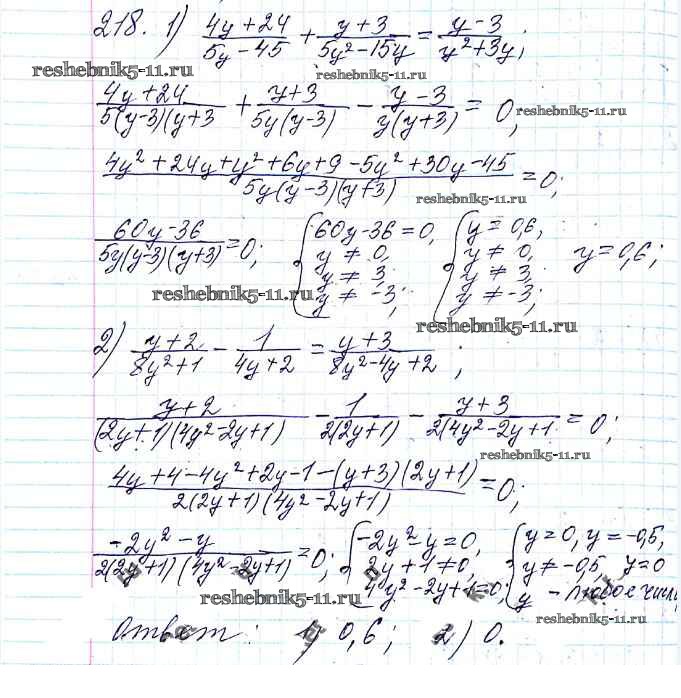 218. 1) (4y+24)/(5y-45) + (y+3)/(5y²-15y) = (y-3)/(y²+3y);
reshebnik5-11.ru
reshebnik5-11.ru
(4y+24)/(5(y-3)(y+3) + (y+3)/(5y(y-3)) - (y-3)/(y(y+3)) = 0;
reshebnik5-11.ru
(4y²+24y+y²+6y+9-5y²+30y-45)/(5y(y-3)(y+3)) = 0;
reshebnik5-11.ru
(60y-36)/(5y(y-3)(y+3)) = 0; { 60y-36=0, y≠0, y≠3; y≠-3; { y=0,6, y≠0, y≠3, y≠-3; y=0,6;
reshebnik5-11.ru
reshebnik5-11.ru
2) (y+2)/(8y²+1) - 1/(4y+2) = (y+3)/(8y²-4y+2);
(y+2)/((2y+1)(4y²-2y+1)) - 1/(2(2y+1)) - (y+3)/(2(4y²-2y+1) = 0;
reshebnik5-11.ru
(4y+4-4y²+2y-1-(y+3)(2y+1))/(2(2y+1)(4y²-2y+1)) = 0;
(-2y²-y)/(2(2y+1)(4y²-2y+1)) = 0; { -2y²-y=0, 2y+1≠0, 4y²-2y+1=0; { y=0, y=-0,5, y≠-0,5, y=0 y - любое число
reshebnik5-11.ru
reshebnik5-11.ru
Ответ: 1) 0,6; 2) 0.